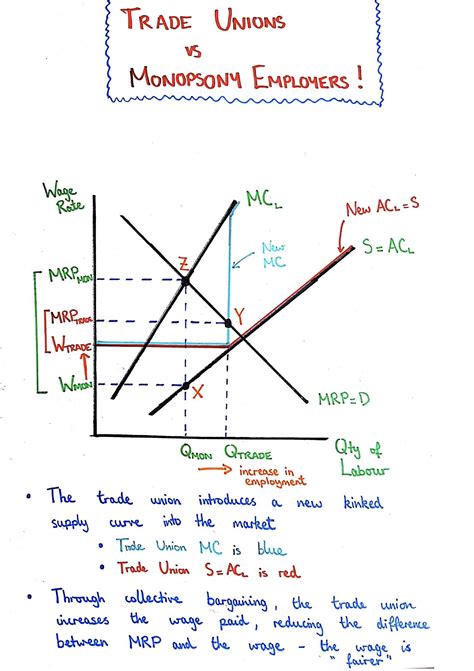 TRADE UNIONS
vs
MONOPSONY EMPLOYERS!
Wage
Rate
MCL
New ACL=S
New
MC
S=ACL
Z
MRPMON
MRPTRADE
Y
WTRADE
WMON
X
MRP=D
QMON QTRADE
Qty of
Labour
→ increase in
employment
• The trade union introduces a new kinked
supply curve into the market
• Trade Union MC is blue
• Trade Union S=ACL is red
• Through collective bargaining, the trade union
increases the wage paid, reducing the difference
between MRP and the wage - the wage is
"fairer"